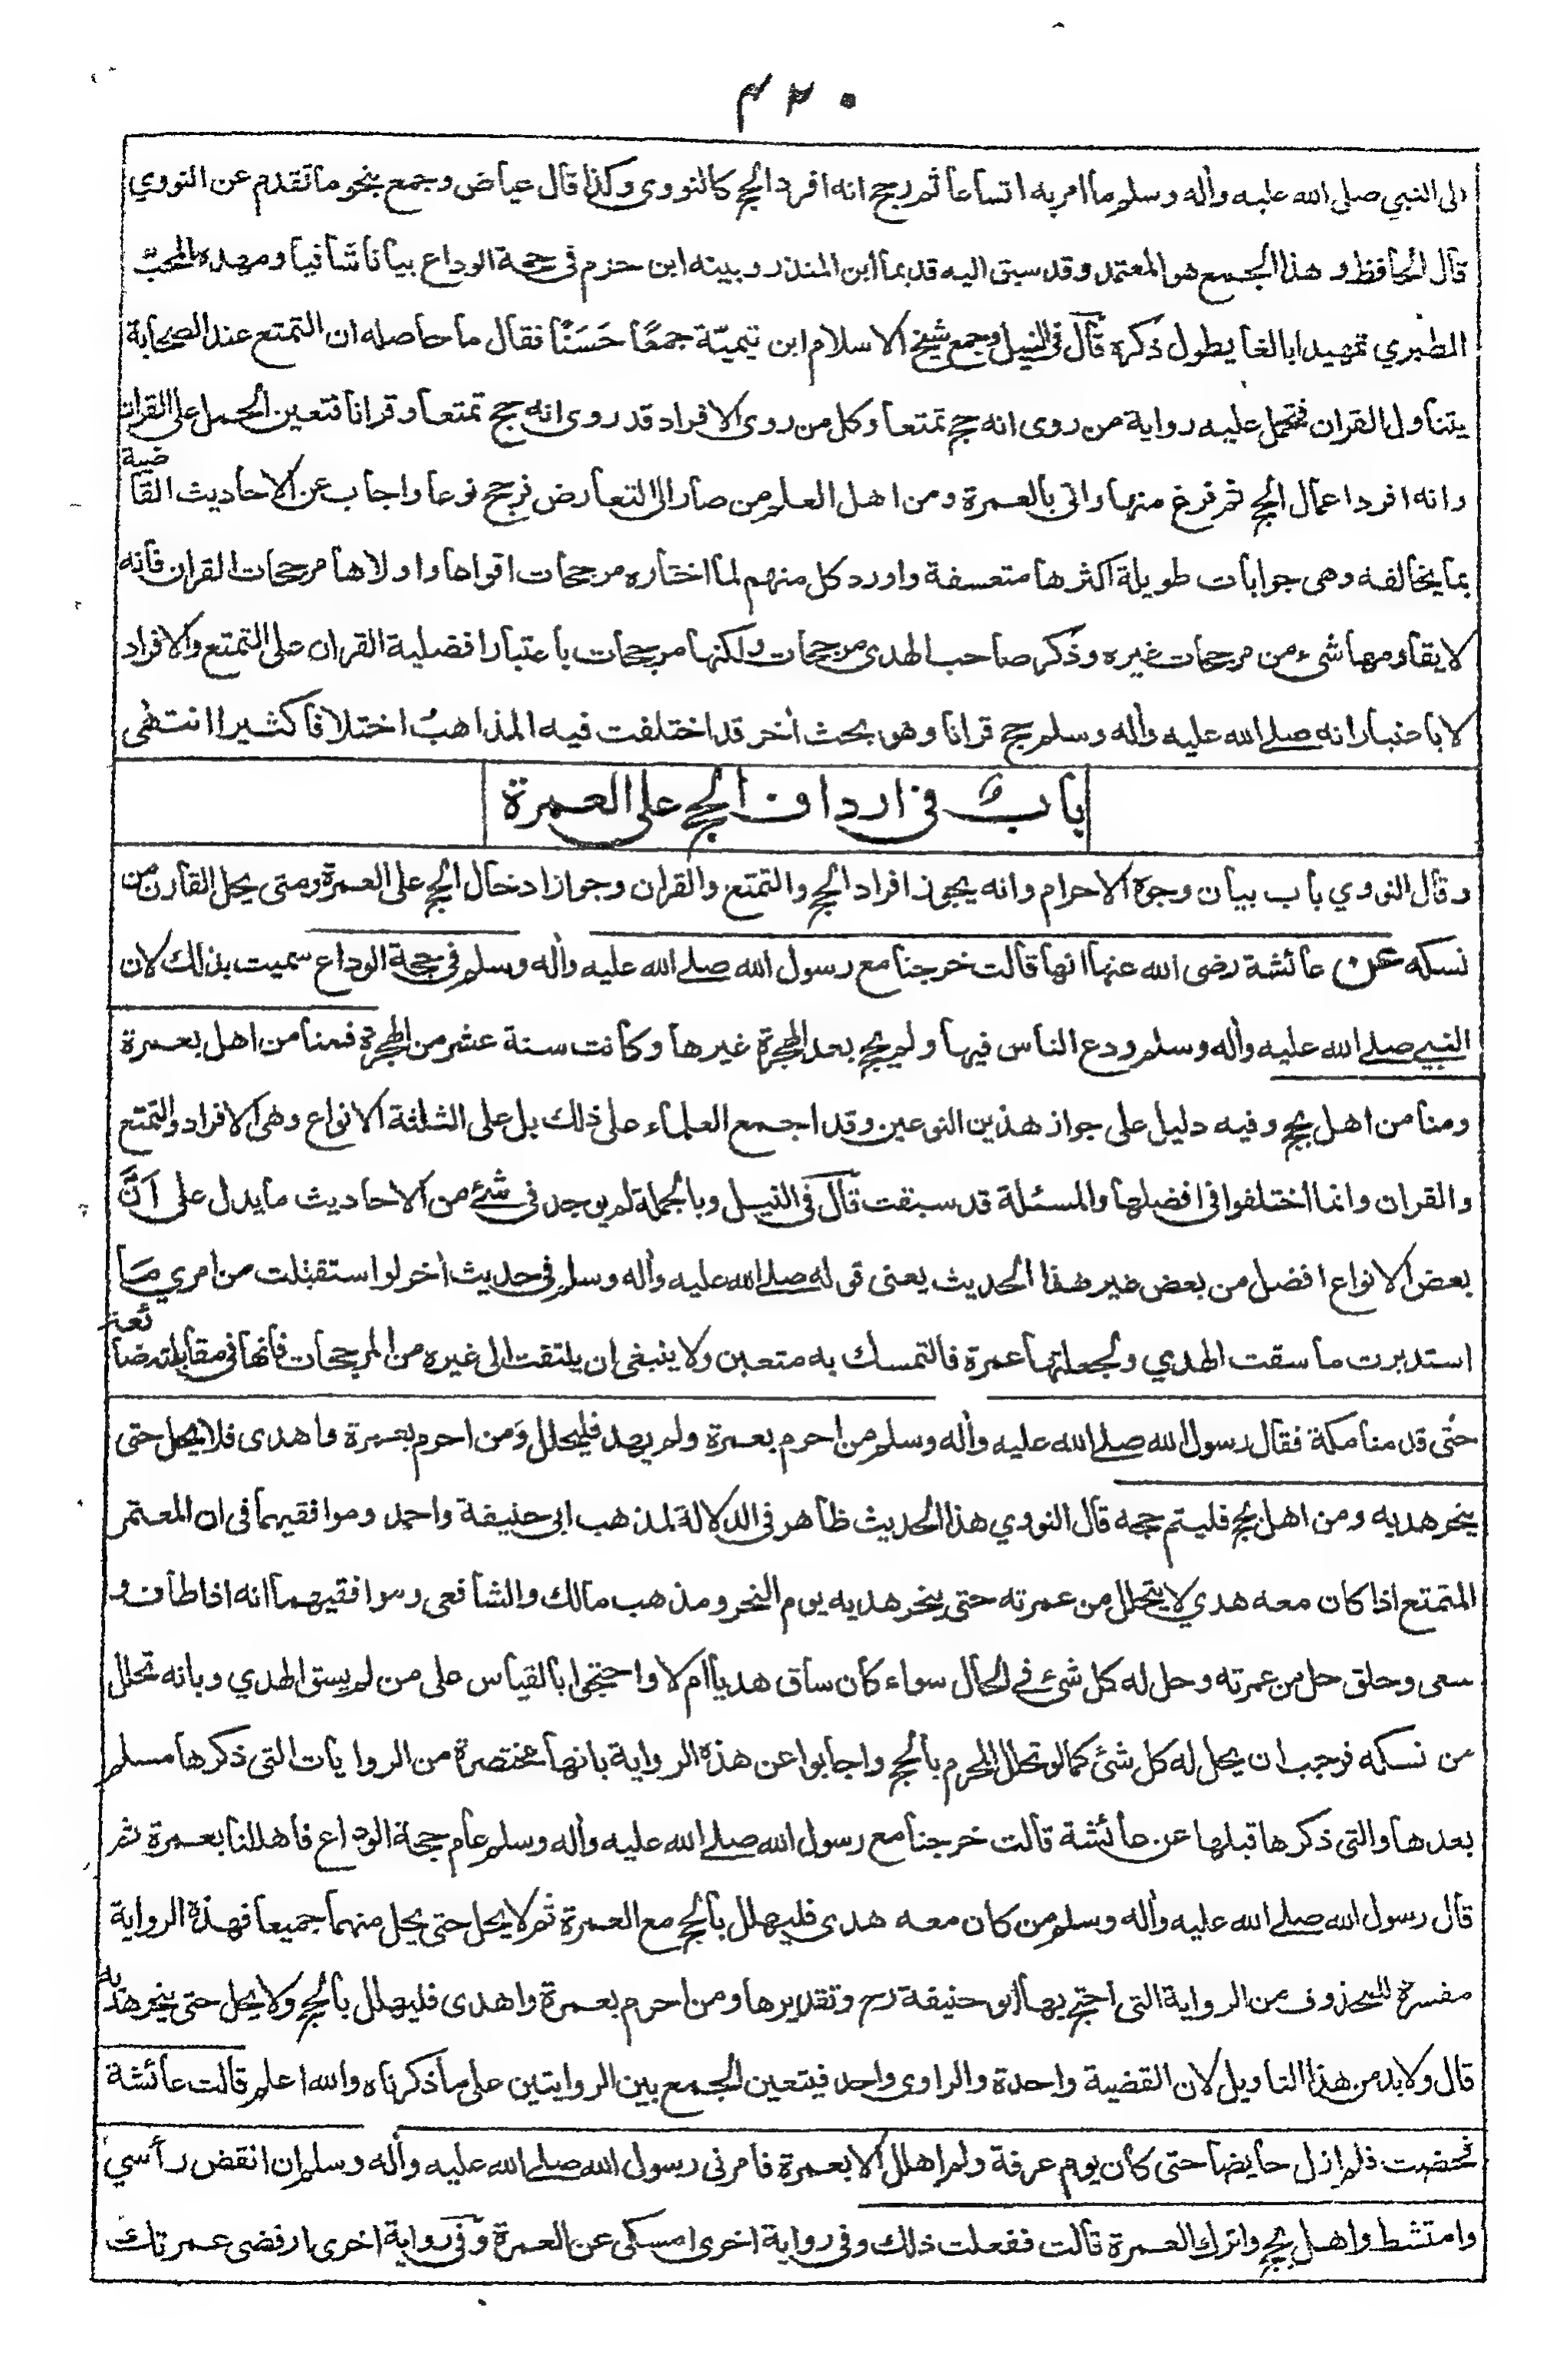 ٤٢٠
الى النبي صلى الله عليه واٰله وسلم ما امر به اتساعا ثم رجح انه افرد الحج كالنووى وكذا قال عياض وجمع بنحو ما تقدم عن النووي
قال الحافظ وهذا الجمع هو المعتمد وقد سبق اليه قديما ابن المنذر وبينه ابن حزم فى حجة الوداع بيانا شافيا ومهده المحب
الطبري تمهيدا بالغا يطول ذكره قال فى النيل وجمع شيخ الاسلام ابن تيميّة جمعًا حَسَنًا فقال ما حاصله ان التمتع عند الصحابة
يتناول القران فتحمل عليه رواية من روى انه حج تمتعا وكل من روى الافراد قد روى انه حج تمتعا وقرانا فتعين الحمل على القران
وانه افرد اعمال الحج ثم فرغ منها واتى بالعمرة ومن اهل العلم من صار الى التعارض فرجح نوعا واجاب عن الاحاديث القاضية
بما يخالفه وهى جوابات طويلة اكثرها متعسفة واورد كل منهم لما اختاره مرجحات اقواها واولاها مرجحات القران فانه
لا يقاومها شىء من مرجحات غيره وذكر صاحب الهدى مرجحات ولكنها مرجحات باعتبار افضلية القران على التمتع والافراد
لا باعتبار انه صلى الله عليه واٰله وسلم حج قرانا وهو بحث اٰخر قد اختلفت فيه المذاهب اختلافا كثيرا انتهى
بابٌ فى ارداف الحج على العمرة
وقال النووي باب بيان وجوه الاحرام وانه يجوز افراد الحج والتمتع والقران وجواز ادخال الحج على العمرة ومتى يحل القارن من
نسكه عن عائشة رضى الله عنها انها قالت خرجنا مع رسول الله صلى الله عليه واٰله وسلم فى حجة الوداع سميت بذلك لان
النبي صلى الله عليه واٰله وسلم ودع الناس فيها ولم يحج بعد الهجرة غيرها وكانت سنة عشر من الهجرة فمنا من اهل بعمرة
ومنا من اهل بحج وفيه دليل على جواز هذين النوعين وقد اجمع العلماء على ذلك بل على الثلثة الانواع وهى الافراد والتمتع
والقران وانما اختلفوا فى افضلها والمسئلة قد سبقت قال فى النيل وبالجملة لم يوجد فى شئ من الاحاديث ما يدل على اَنَّ
بعض الانواع افضل من بعض غير هذا الحديث يعنى قوله صلى الله عليه واٰله وسلم فى حديث اٰخر لو استقبلت من امري مَا
استدبرت ما سقت الهدي ولجعلتها عمرة فالتمسك به متعين ولا ينبغى ان يلتفت الى غيره من المرجحات فانها فى مقابلته ضائعة
حتى قدمنا مكة فقال رسول الله صلى الله عليه واٰله وسلم من احرم بعمرة ولم يهد فليحلل وَمن احرم بعمرة واهدى فلا يحل حتى
ينحر هديه ومن اهل بحج فليتم حجه قال النووي هذا الحديث ظاهر فى الدلالة لمذهب ابى حنيفة واحمد وموافقيهما فى ان المعتمر
المتمتع اذا كان معه هدي لا يتحلل من عمرته حتى ينحر هديه يوم النحر ومذهب مالك والشافعى وموافقيهما انه اذا طاف و
سعى وحلق حل من عمرته وحل له كل شئ فى الحال سواء كان ساق هديا ام لا واحتجوا بالقياس على من لم يسق الهدي وبانه تحلل
من نسكه فوجب ان يحل له كل شئ كما لو تحلل المحرم بالحج واجابوا عن هذه الرواية بانها مختصرة من الروايات التى ذكرها مسلم
بعدها والتى ذكرها قبلها عن عائشة قالت خرجنا مع رسول الله صلى الله عليه واٰله وسلم عام حجة الوداع فاهللنا بعمرة ثم
قال رسول الله صلى الله عليه واٰله وسلم من كان معه هدى فليهلل بالحج مع العمرة ثم لا يحل حتى يحل منهما جميعا فهذه الرواية
مفسرة للمحذوف من الرواية التى احتج بها ابو حنيفة رح وتقديرها ومن احرم بعمرة واهدى فليهلل بالحج ولا يحل حتى ينحر هديه
قال ولا بد من هذا التاويل لان القضية واحدة والراوى واحد فيتعين الجمع بين الروايتين على ما ذكرناه والله اعلم قالت عائشة
فحضت فلم ازل حايضا حتى كان يوم عرفة ولم اهلل الا بعمرة فامرنى رسول الله صلى الله عليه واٰله وسلم ان انقض رأسي
وامتشط واهل بحج واترك العمرة قالت ففعلت ذلك وفى رواية اخرى امسكى عن العمرة وفى رواية اخرى ارفضى عمرتك